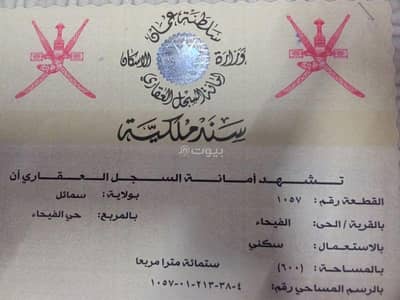 سلطنة عمان
وزارة الإسكان
أمانة السجل العقاري
سند ملكية
بيوت
تشهد أمانة السجل العقاري أن
القطعة رقم : ١٠٥٧ بولاية : سمائل
بالقرية / الحي : الفيحاء بالمربع : حي الفيحاء
بالاستعمال : سكني
بالمساحة : (٦٠٠) ستمائة مترا مربعا
بالرسم المساحي رقم : ٤-٣٨-٢١٣-٠١-١٠٥٧